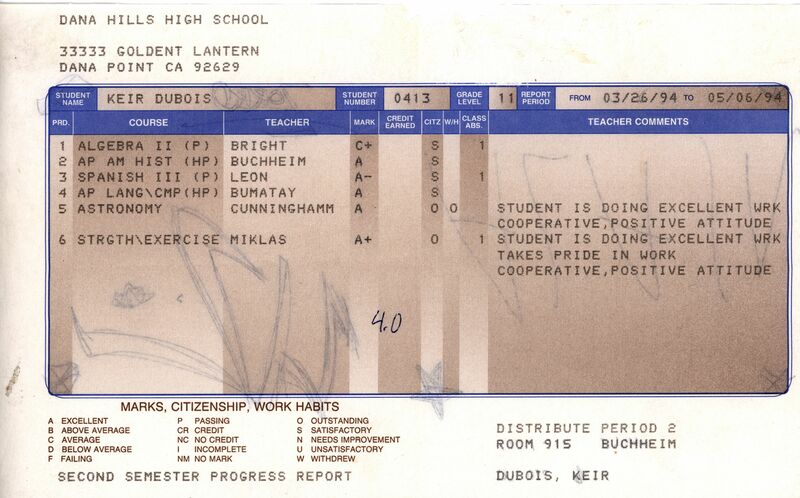 DANA HILLS HIGH SCHOOL
33333 GOLDENT LANTERN
DANA POINT CA 92629
STUDENT NAME KEIR DUBOIS STUDENT NUMBER 0413 GRADE LEVEL 11 REPORT PERIOD FROM 03/26/94 TO 05/06/94
PRD. COURSE TEACHER MARK CREDIT EARNED CITZ W/H CLASS ABS. TEACHER COMMENTS
1 ALGEBRA II (P) BRIGHT C+ S 1
2 AP AM HIST (HP) BUCHHEIM A S
3 SPANISH III (P) LEON A- S 1
4 AP LANG\CMP(HP) BUMATAY A S
5 ASTRONOMY CUNNINGHAMM A O O STUDENT IS DOING EXCELLENT WRK
COOPERATIVE,POSITIVE ATTITUDE
6 STRGTH\EXERCISE MIKLAS A+ O 1 STUDENT IS DOING EXCELLENT WRK
TAKES PRIDE IN WORK
COOPERATIVE,POSITIVE ATTITUDE
4.0
MARKS, CITIZENSHIP, WORK HABITS
A EXCELLENT P PASSING O OUTSTANDING
B ABOVE AVERAGE CR CREDIT S SATISFACTORY
C AVERAGE NC NO CREDIT N NEEDS IMPROVEMENT
D BELOW AVERAGE I INCOMPLETE U UNSATISFACTORY
F FAILING NM NO MARK W WITHDREW
SECOND SEMESTER PROGRESS REPORT
DISTRIBUTE PERIOD 2
ROOM 915 BUCHHEIM
DUBOIS, KEIR